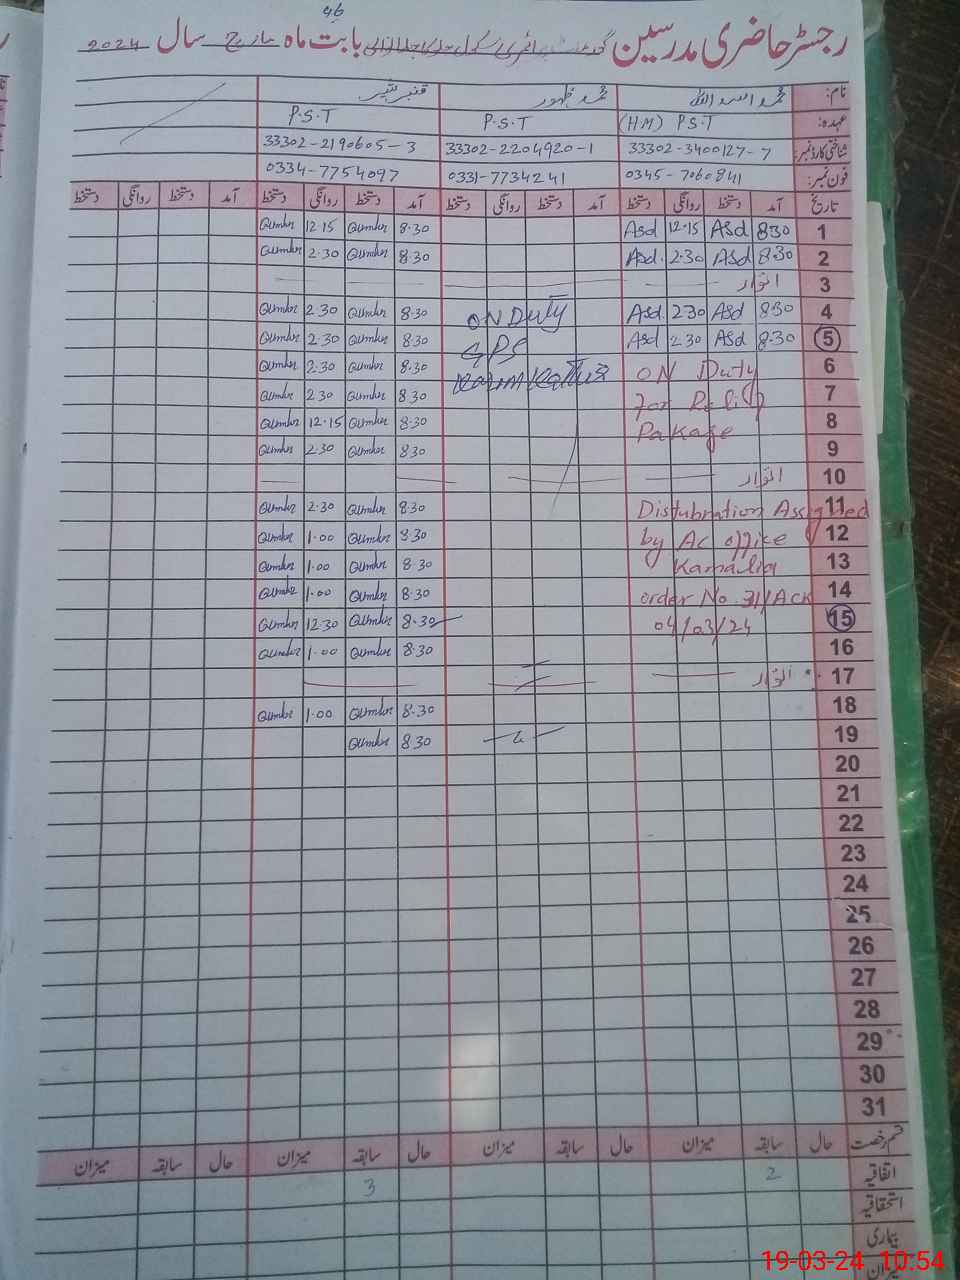 46
رجسٹر حاضری مدرسین گورنمنٹ پرائمری سکول بابت ماہ مارچ سال 2024
نام: محمد اسد اللہ محمد ظہور قنبر
عہدہ: (HM) P.S.T P.S.T P.S.T
شناختی کارڈ نمبر: 33302-3400127-7 33302-2204920-1 33302-2190605-3
فون نمبر: 0345-7060841 0331-7734241 0334-7754097
تاریخ آمد دستخط روانگی دستخط آمد دستخط روانگی دستخط آمد دستخط روانگی دستخط آمد دستخط روانگی دستخط
1 8:30 Asd 12.15 Asd 8.30 Qumbr 12.15 Qumbr
2 8.30 Asd 2.30 Asd. 8.30 Qumbr 2.30 Qumbr
3 اتوار
4 8.30 Asd 2.30 Asd ON Duty 8.30 Qumbr 2.30 Qumbr
5 8.30 Asd 2.30 Asd GPS 8.30 Qumbr 2.30 Qumbr
6 ON Duty 8.30 Qumbr 2.30 Qumbr
7 For Relif 8.30 Qumbr 2.30 Qumbr
8 Pakage 8.30 Qumbr 12.15 Qumbr
9 8.30 Qumbr 2.30 Qumbr
10 اتوار
11 Distubration Assigned 8.30 Qumbr 2.30 Qumbr
12 by Ac office 8.30 Qumbr 1.00 Qumbr
13 Kamalia 8.30 Qumbr 1.00 Qumbr
14 order No. 31/ACK 8.30 Qumbr 1.00 Qumbr
15 04/03/24 8.30 Qumbr 12.30 Qumbr
16 8.30 Qumbr 1.00 Qumbr
17 اتوار
18 8.30 Qumbr 1.00 Qumbr
19 8.30 Qumbr
20
21
22
23
24
25
26
27
28
29
30
31
قسم رخصت حال سابقہ میزان حال سابقہ میزان حال سابقہ میزان حال سابقہ میزان
اتفاقیہ 2 3
استحقاقیہ
بیماری
میزان
19-03-24 10:54